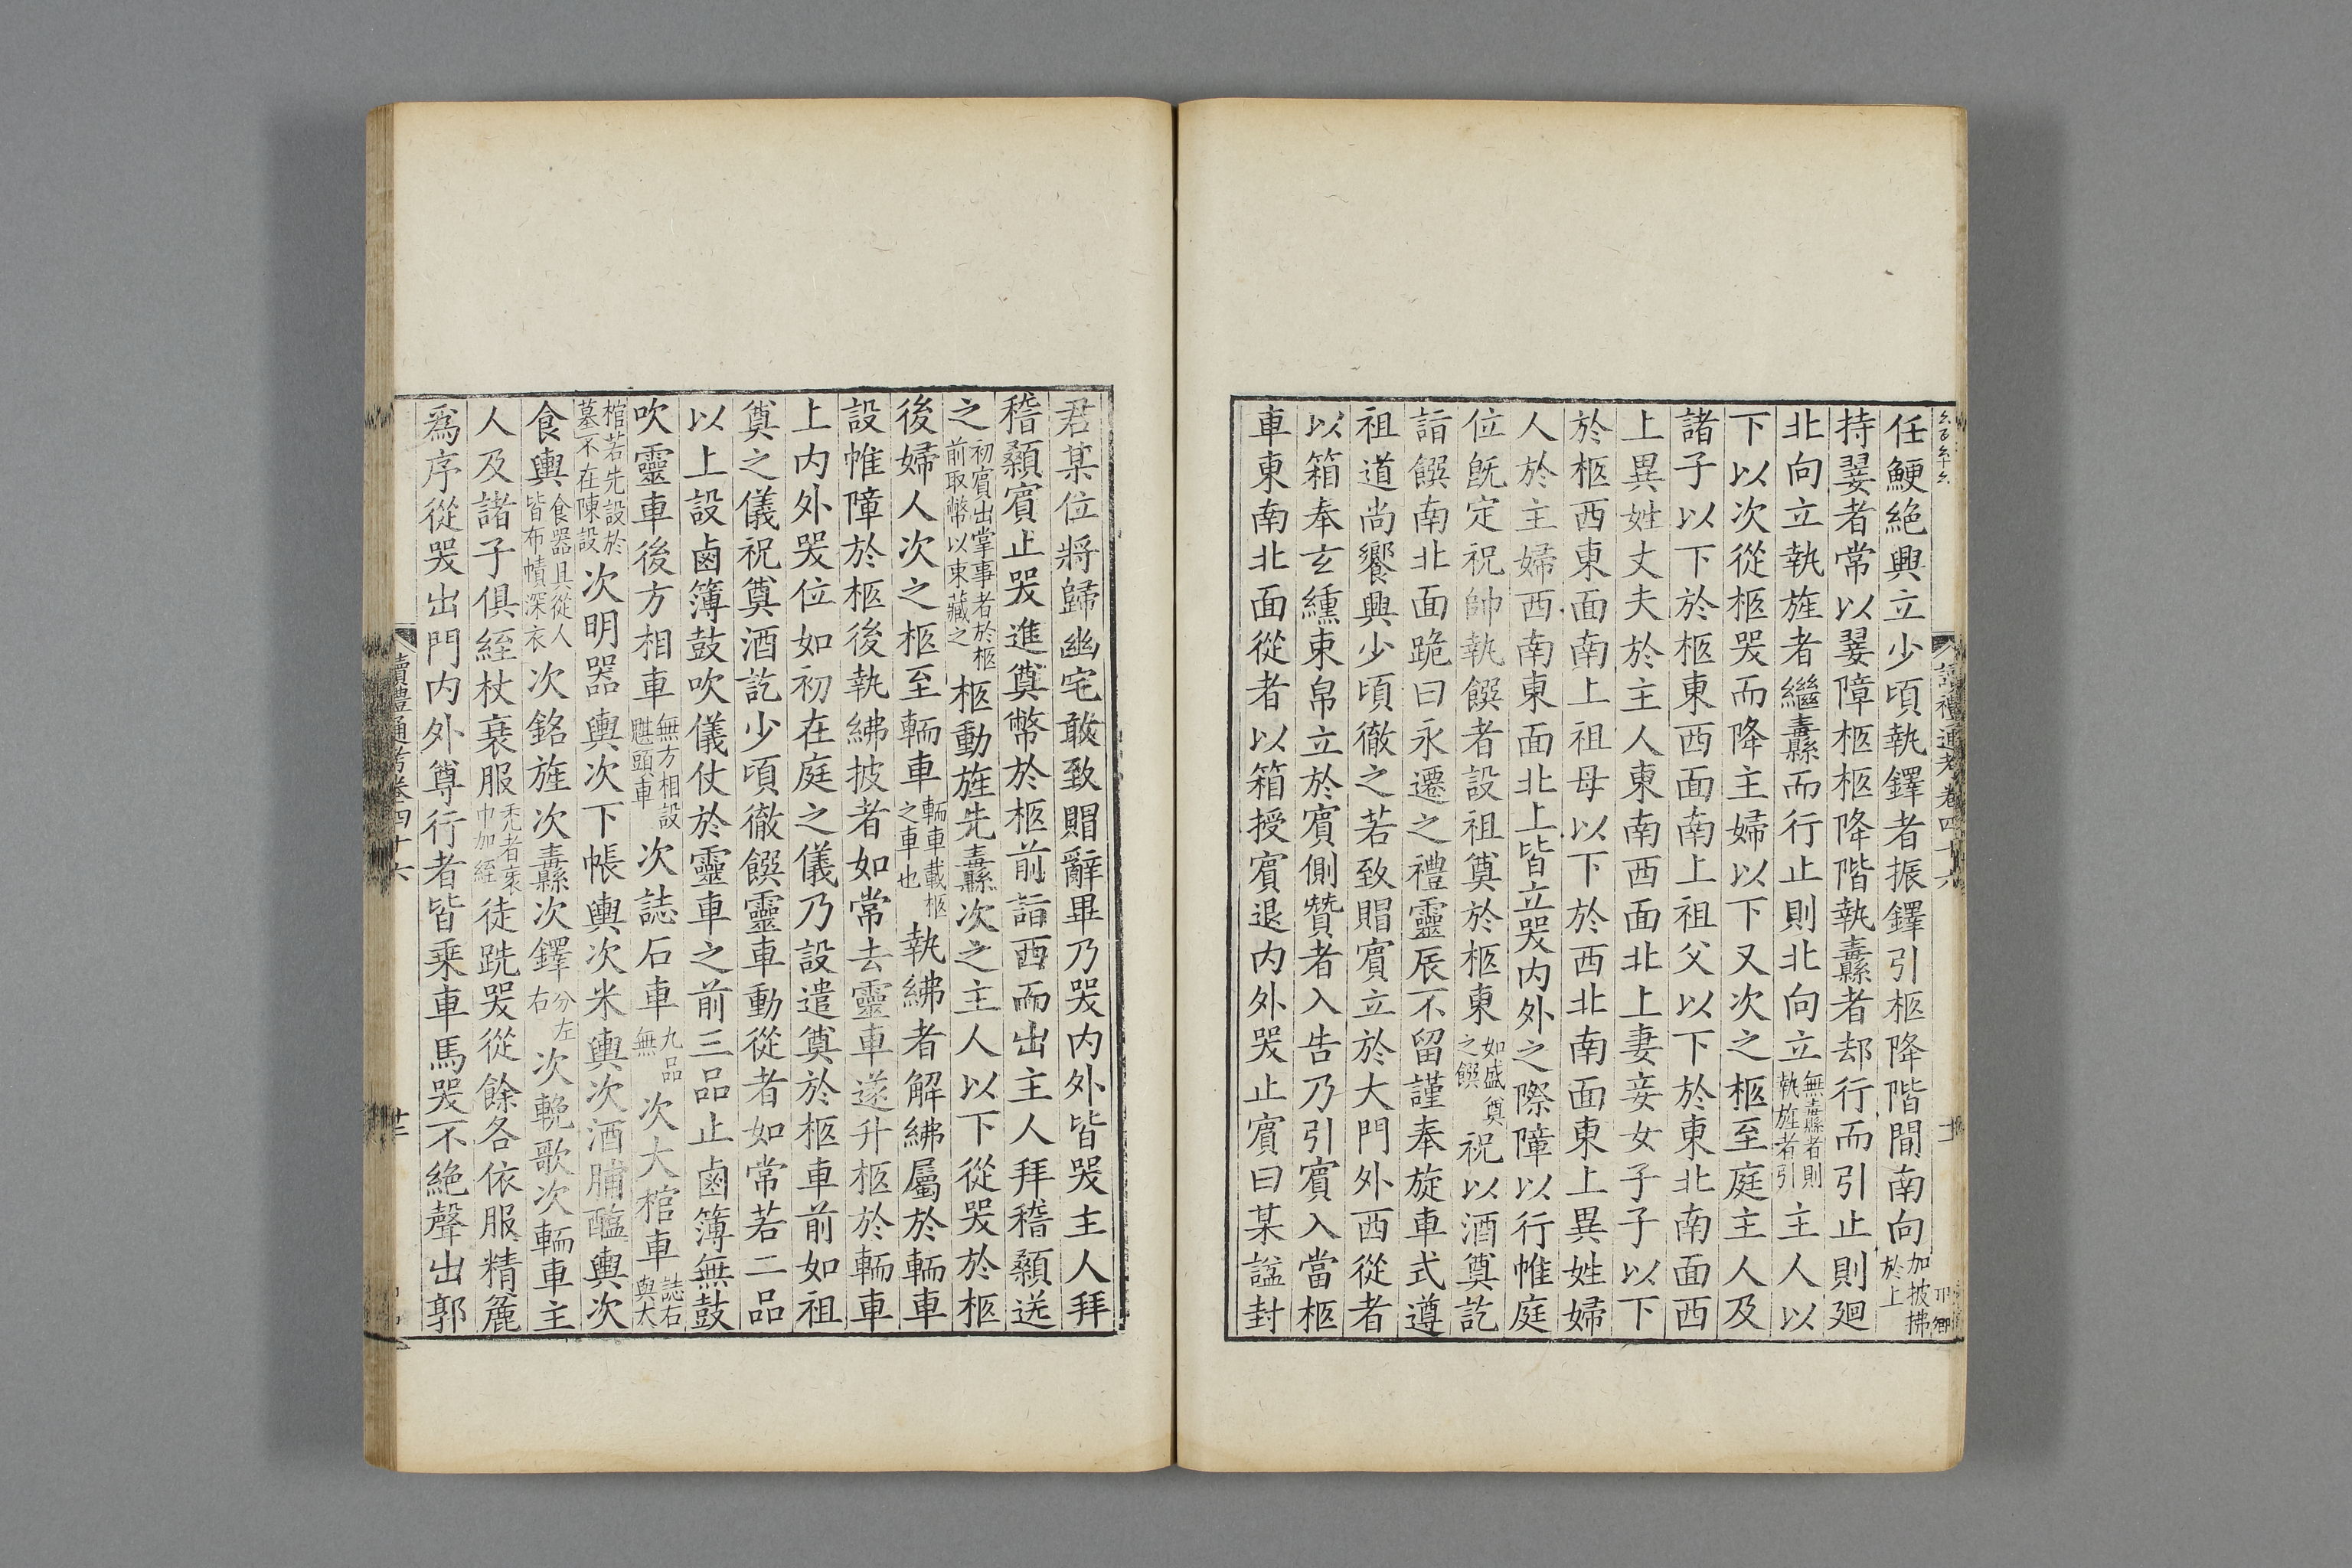 任鯁絶興立少頃執鐸者振鐸引柩降階間南向加披拂於上
持翣者常以翣障柩柩降階執纛者却行而引止則廻
北向立執旌者繼纛而行止則北向立無纛者則執旌者引主人以
下以次從柩哭而降主婦以下又次之柩至庭主人及
諸子以下於柩東西面南上祖父以下於東北南面西
上異姓丈夫於主人東南西面北上妻妾女子子以下
於柩西東面南上祖母以下於西北南面東上異姓婦
人於主婦西南東面北上皆立哭内外之際障以行帷庭
位旣定祝帥執饌者設祖奠於柩東如盛奠之饌祝以酒奠訖
詣饌南北面跪曰永遷之禮靈辰不留謹奉旋車式遵
祖道尚饗興少頃徹之若致賵賓立於大門外西從者
以箱奉玄纁束帛立於賓側贊者入告乃引賓入當柩
車東南北面從者以箱授賓退内外哭止賓曰某謚封
讀禮通考卷四十六
君某位將歸幽宅敢致賵辭畢乃哭内外皆哭主人拜
稽顙賓止哭進奠幣於柩前詣西而出主人拜稽顙送
之初賓出掌事者於柩前取幣以東藏之柩動旌先纛次之主人以下從哭於柩
後婦人次之柩至輀車輀車載柩之車也執紼者解紼屬於輀車
設帷障於柩後執紼披者如常去靈車遂升柩於輀車
上内外哭位如初在庭之儀乃設遣奠於柩車前如祖
奠之儀祝奠酒訖少頃徹饌靈車動從者如常若二品
以上設鹵簿鼓吹儀仗於靈車之前三品止鹵簿無鼓
吹靈車後方相車無方相設魌頭車次誌石車九品無次大棺車誌石與大
棺若先設於墓不在陳設次明器輿次下帳輿次米輿次酒脯醢輿次
食輿食器具從人皆布幘深衣次銘旌次纛次鐸分左右次輓歌次輀車主
人及諸子俱絰杖衰服禿者衰巾加絰徒跣哭從餘各依服精麄
爲序從哭出門内外尊行者皆乗車馬哭不絶聲出郭
讀禮通考卷四十六